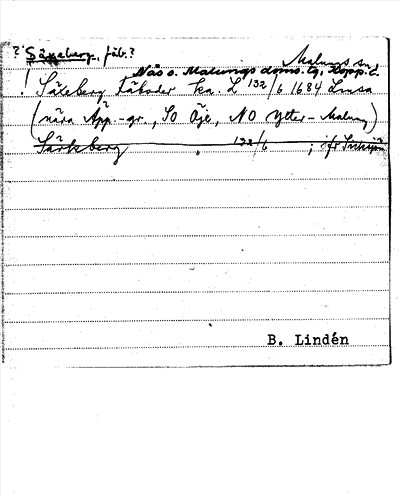 ? Säxeberg, fäb.?
Malungs sn,
Näs o. Malungs doms. tg, Kopp. l.
! Säleberg Fäboder Ka. L 132/6 1684 Lmsa
(nära Äpp.-gr., SO Öje, NO Ytter-Malung)
Särkberg 132/6 ; jfr
B. Lindén